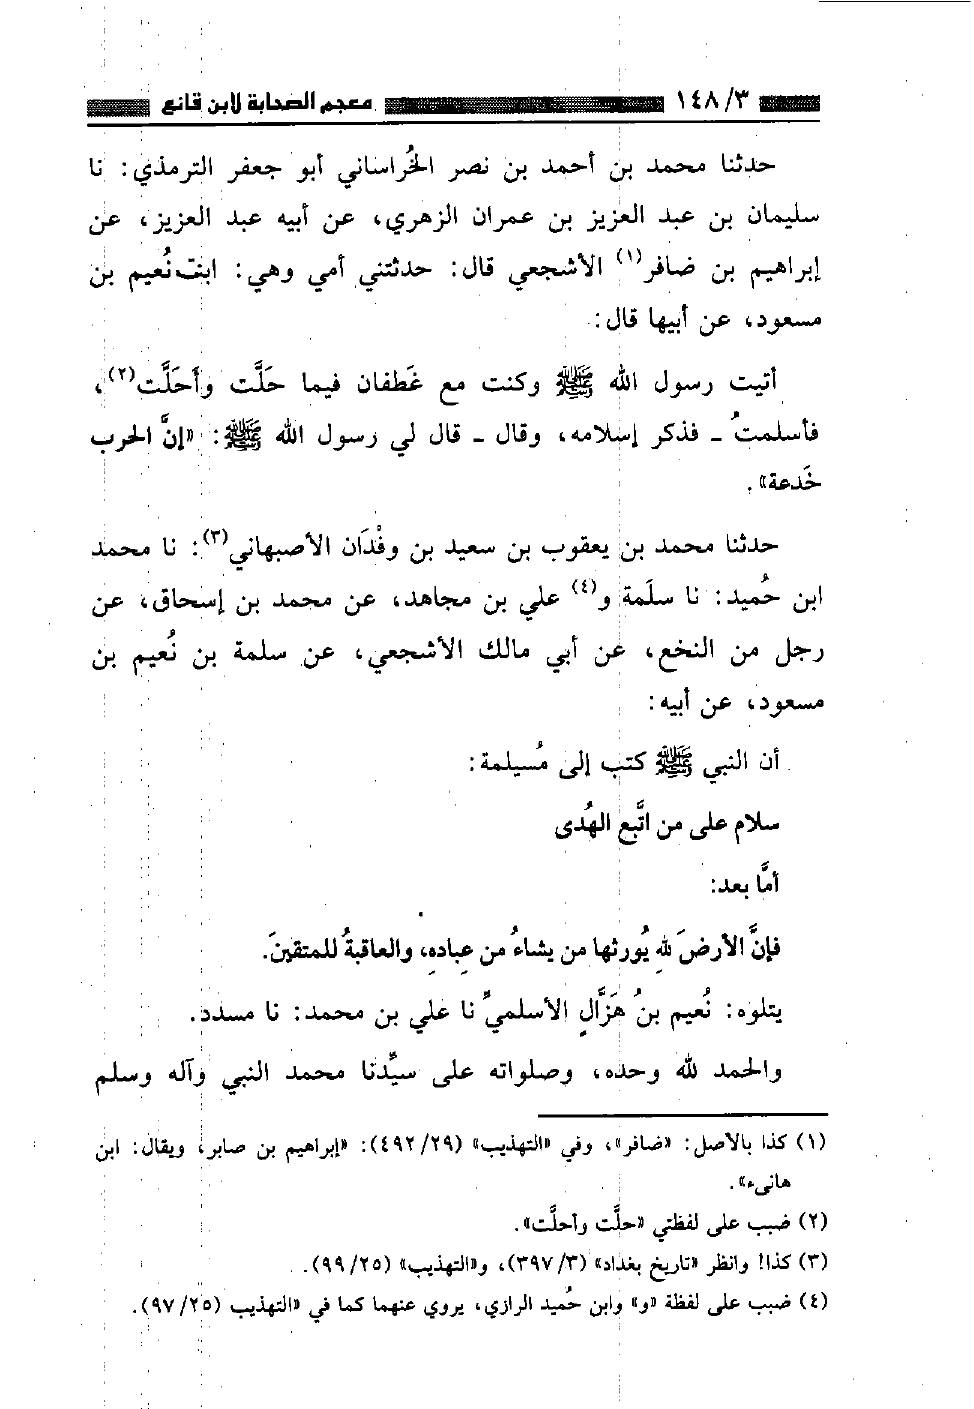 ١٤٨/٣ معجم الصحابة لابن قانع
حدثنا محمد بن أحمد بن نصر الخُراساني أبو جعفر الترمذي: نا
سليمان بن عبد العزيز بن عمران الزهري، عن أبيه عبد العزيز، عن
إبراهيم بن ضافر(١) الأشجعي قال: حدثتني أمي وهي: ابنت نُعيم بن
مسعود، عن أبيها قال:
أتيت رسول الله ﷺ وكنت مع غَطفان فيما حَلَّت وأَحَلَّت(٢)،
فأسلمتُ ـ فذكر إسلامه، وقال ـ قال لي رسول الله ﷺ: «إنَّ الحرب
خَدعة».
حدثنا محمد بن يعقوب بن سعيد بن وفْدَان الأصبهاني(٣): نا محمد
ابن حُميد: نا سلَمة و(٤) علي بن مجاهد، عن محمد بن إسحاق، عن
رجل من النخع، عن أبي مالك الأشجعي، عن سلمة بن نُعيم بن
مسعود، عن أبيه:
أن النبي ﷺ كتب إلى مُسيلمة:
سلام على من اتَّبع الهُدى
أمَّا بعد:
فإنَّ الأرضَ للهِ يُورثها من يشاءُ من عِبادهِ، والعاقبةُ للمتقينَ.
يتلوه: نُعيم بنُ هَزَّالٍ الأسلميِّ نا علي بن محمد: نا مسدد.
والحمد لله وحده، وصلواته على سيِّدنا محمد النبي وآله وسلم
(١) كذا بالأصل: «ضافر»، وفي «التهذيب» (٤٩٢/٢٩): «إبراهيم بن صابر، ويقال: ابن
هانىء».
(٢) ضبب على لفظتي «حلَّت وأحلَّت».
(٣) كذا! وانظر «تاريخ بغداد» (٣٩٧/٣)، و«التهذيب» (٩٩/٢٥).
(٤) ضبب على لفظة «و» وابن حُميد الرازي، يروي عنهما كما في «التهذيب (٩٧/٢٥).